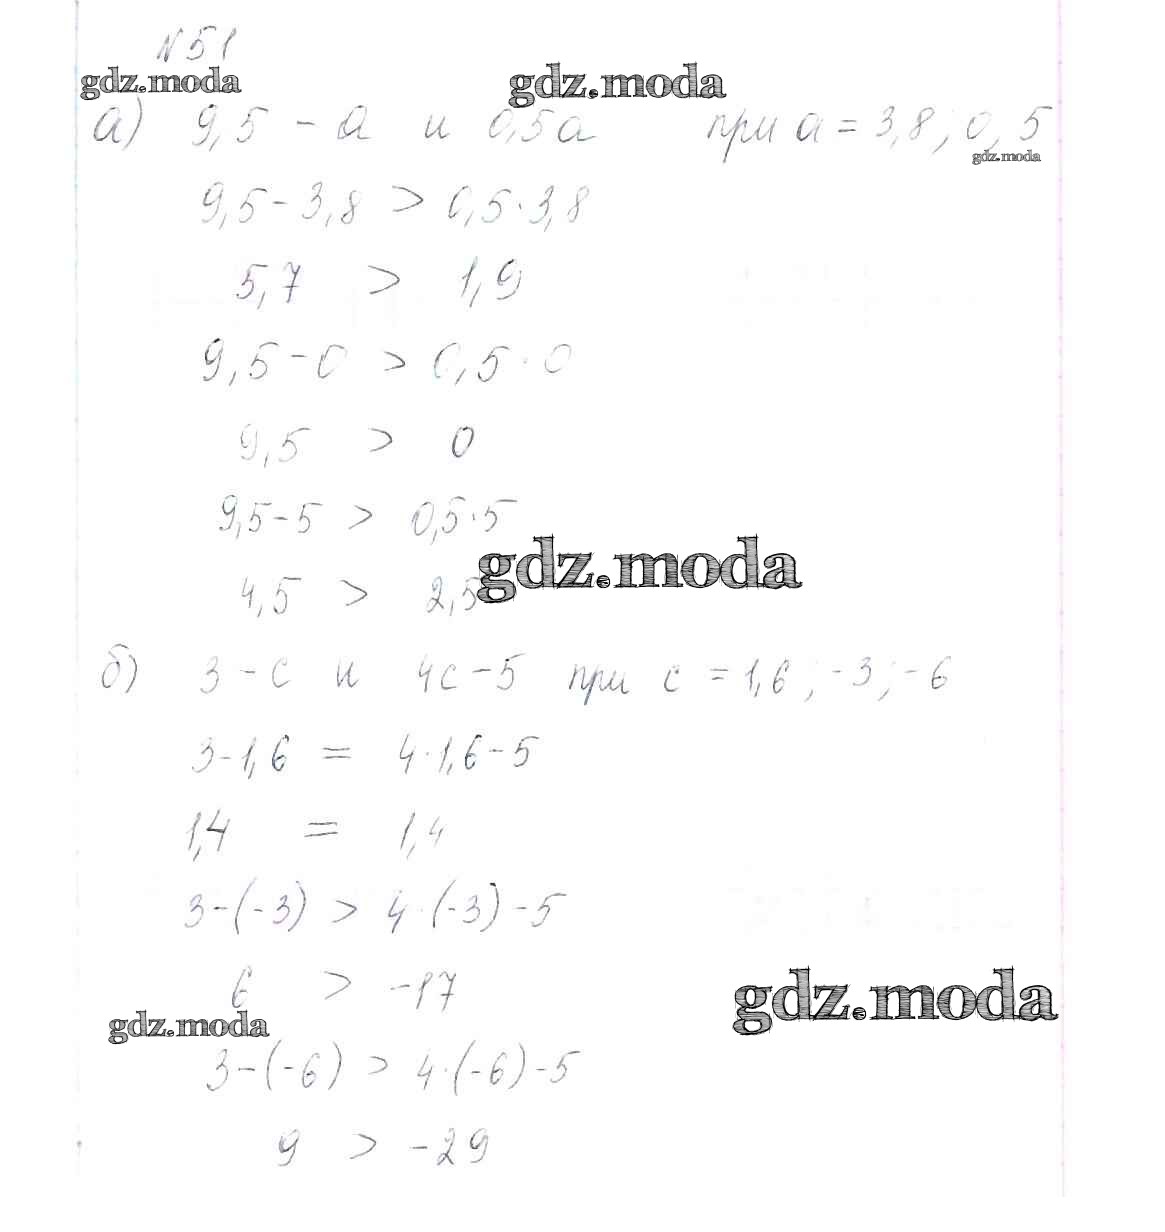 № 51
gdz.moda gdz.moda
а) 9,5 - а и 0,5а при а = 3,8; 0, 5
gdz.moda
9,5 - 3,8 > 0,5 · 3,8
5,7 > 1,9
9,5 - 0 > 0,5 · 0
9,5 > 0
9,5 - 5 > 0,5 · 5
gdz.moda
4,5 > 2,5
б) 3 - с и 4с - 5 при с = 1,6; -3; -6
3 - 1,6 = 4 · 1,6 - 5
1,4 = 1,4
3 - (-3) > 4 · (-3) - 5
6 > -17
gdz.moda
gdz.moda
3 - (-6) > 4 · (-6) - 5
9 > -29